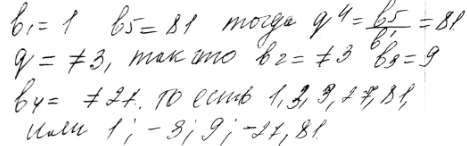 b₁ = 1 b₅ = 81 тогда q⁴ = b₅/b₁ = 81
q = ±3, так что b₂ = ±3 b₃ = 9
b₄ = ±27. то есть 1, 3, 9, 27, 81,
или 1; -3; 9; -27, 81